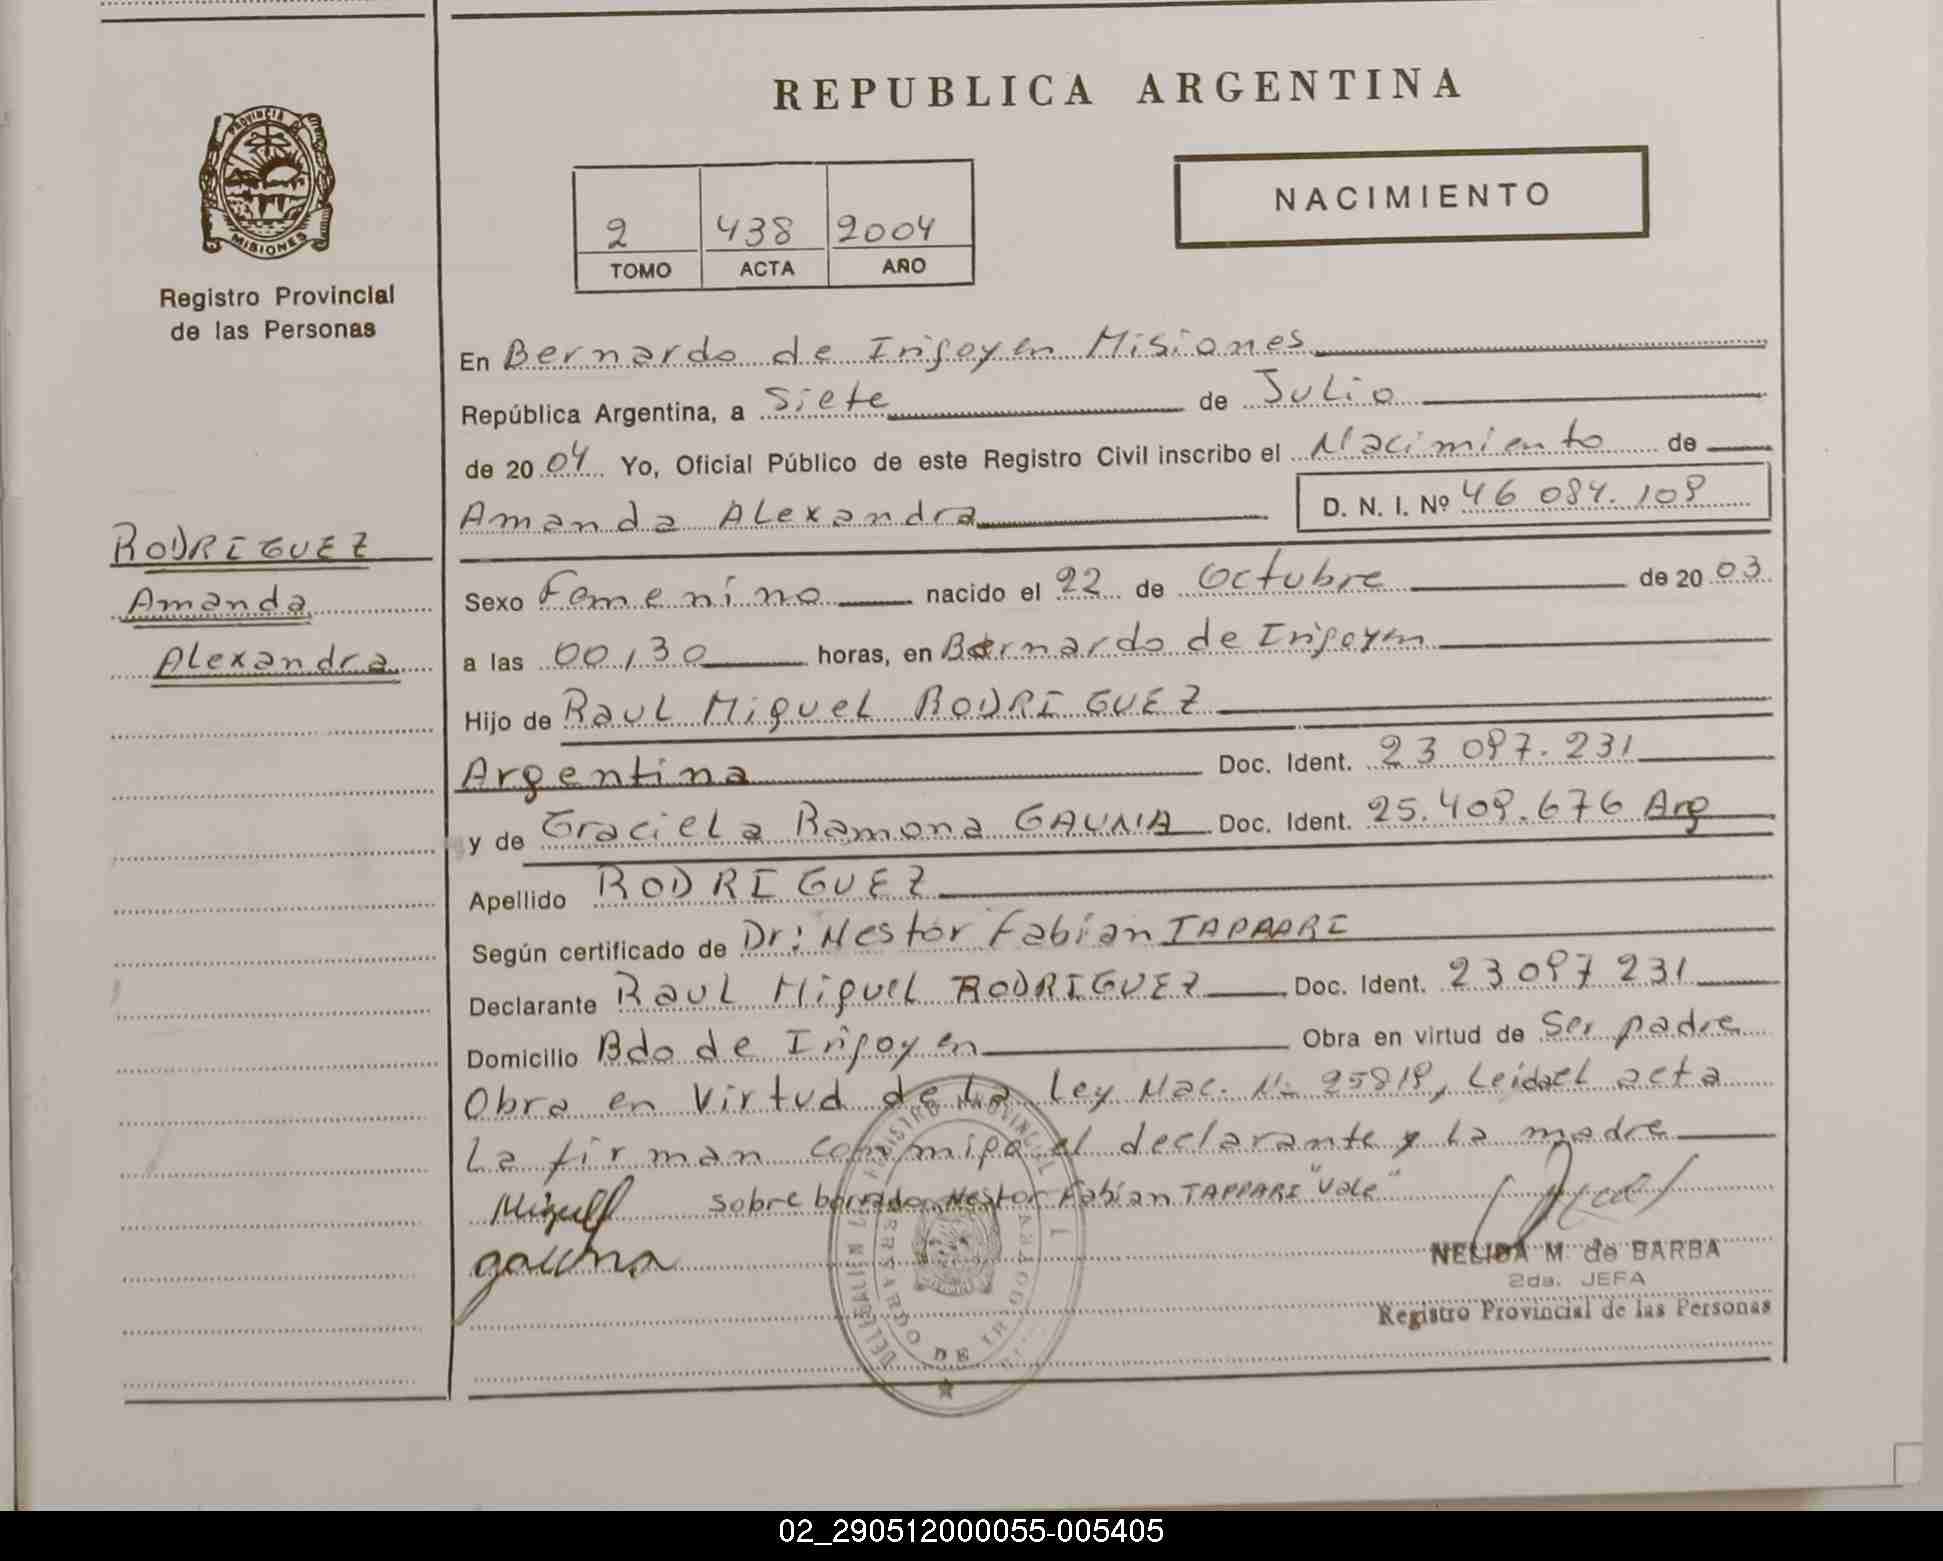 REPUBLICA ARGENTINA
PROVINCIA DE
MISIONES
Registro Provincial
de las Personas
NACIMIENTO
2 438 2004
TOMO ACTA AÑO
En Bernardo de Irigoyen Misiones
República Argentina, a Siete de Julio
de 20 04 Yo, Oficial Público de este Registro Civil inscribo el Nacimiento de
Amanda Alexandra D. N. I. Nº 46 084. 109
RODRIGUEZ
Amanda
Alexandra
Sexo Femenino nacido el 22 de Octubre de 20 03
a las 00,30 horas, en Bernardo de Irigoyen
Hijo de Raul Miguel RODRIGUEZ
Argentina Doc. Ident. 23 097. 231
y de Graciela Ramona GAUNA Doc. Ident. 25. 409. 676 Arg
Apellido RODRIGUEZ
Según certificado de Dr: Nestor Fabian TAPPARI
Declarante Raul Miguel RODRIGUEZ Doc. Ident. 23 097 231
Domicilio Bdo de Irigoyen Obra en virtud de Ser padre
Obra en Virtud de La Ley Nac. Nº 25819, Leida el acta
La firman conmigo el declarante y La madre
Miguel Sobre borrado, Nestor Fabian TAPPARI "Vale"
gauna
NELIDA M. de BARBA
2da. JEFA
Registro Provincial de las Personas
02_290512000055-005405